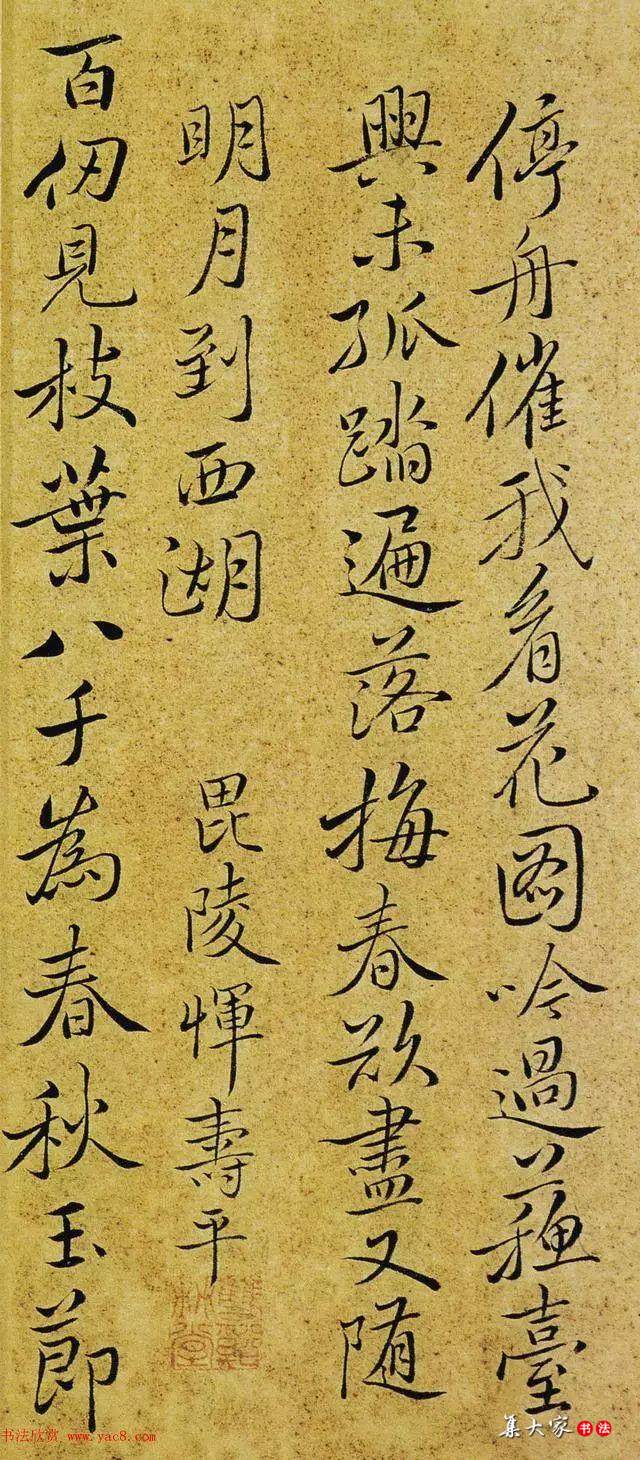 停舟催我看花圖吟過蘓臺
興未孤踏遍落梅春欲盡又随
明月到西湖
毘陵惲壽平
百仞見枝葉八千為春秋玉節
集大家书法
书法欣赏 www.yac8.com